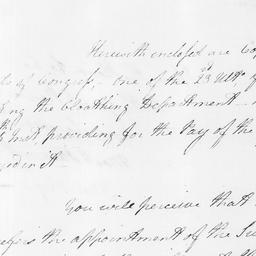 Herewith enclosed are Cop
of Congress, one of the 23d Ulto
ing the Cloathing Department
Inst. providing for the Pay of the
ed in it
You will perceive that
refers the appointment of the Su